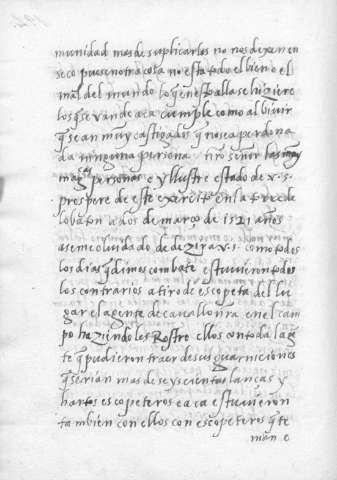 munidad mas de suplicarles no nos dexen en
seco pues no tra cosa no esta todo el bien o el
mal del mundo lo q̃ en esto alla se hiziere
los q̃ se van de aca cumple como al biuir
q̃ sean muy castigados q̃ no sea perdona
da ninguna persona nr̃o señor las muy
mag̃cas personas e yllustre estado de v. s.
prospere de este exerçito en la torre de
lobaton a dos de março de 1521 años
aseme oluidado de dezir a v. s. como todos
los dias q̃ dimos combate estuuieron todos
los contrarios a tiro de escopeta del lu
gar el agente de cauallo nr̃a en el cam
po haziendoles Rostro ellos con toda la gẽ
te q̃ pudieron traer de sus guarniciones
q̃ serian mas de seyscientas lanças y
hartos escopeteros e aca estuuieron
tambien con ellos con escopeteros q̃ te
man e